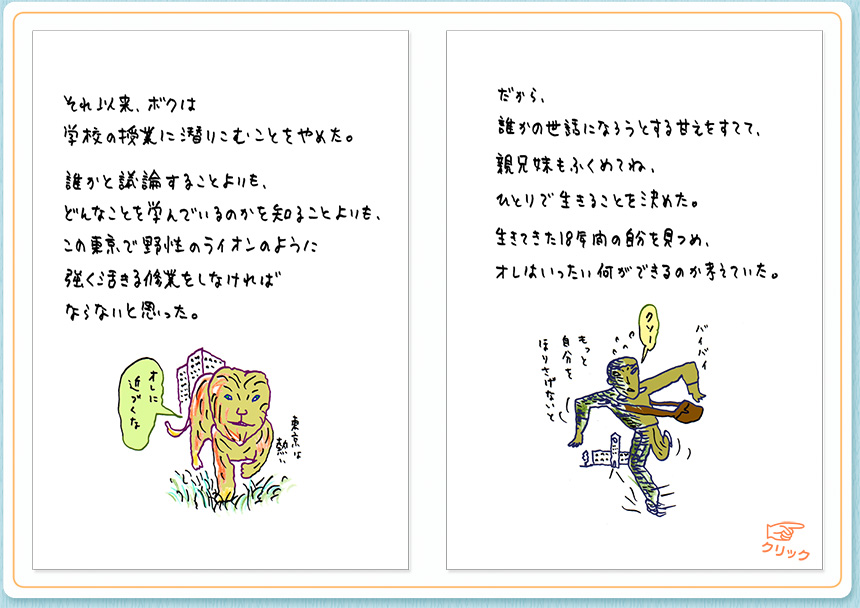 それ以来、ボクは
学校の授業に潜りこむことをやめた。
誰かと議論することよりも、
どんなことを学んでいるのかを知ることよりも、
この東京で野性のライオンのように
強く活きる修業をしなければ
ならないと思った。
オレに
近づくな
東京は
熱い
だから、
誰かの世話になろうとする甘えをすてて、
親兄妹もふくめてね、
ひとりで生きることを決めた。
生きてきた18年間の自分を見つめ、
オレはいったい何ができるのか考えていた。
クソー
バイバイ
もっと
自分を
ほりさげないと
クリック